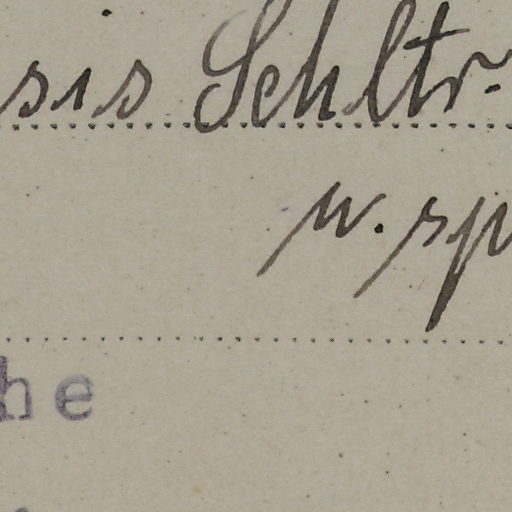 sis Schltr.
n. sp
he